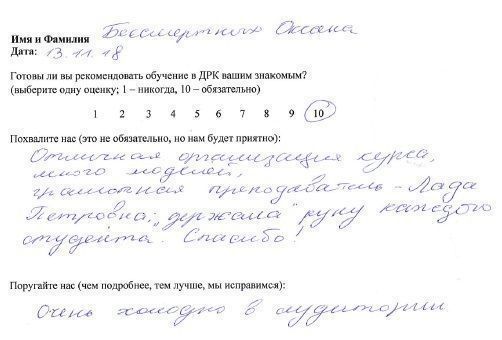 Имя и Фамилия Бессмертных Оксана
Дата: 13.11.18
Готовы ли вы рекомендовать обучение в ДРК вашим знакомым?
(выберите одну оценку; 1 – никогда, 10 – обязательно)
1 2 3 4 5 6 7 8 9 10
Похвалите нас (это не обязательно, но нам будет приятно):
Отличная организация курса,
много моделей,
грамотная преподаватель - Лада
Петровна, „держала“ руку каждого
студента. Спасибо!
Поругайте нас (чем подробнее, тем лучше, мы исправимся):
Очень холодно в аудитории